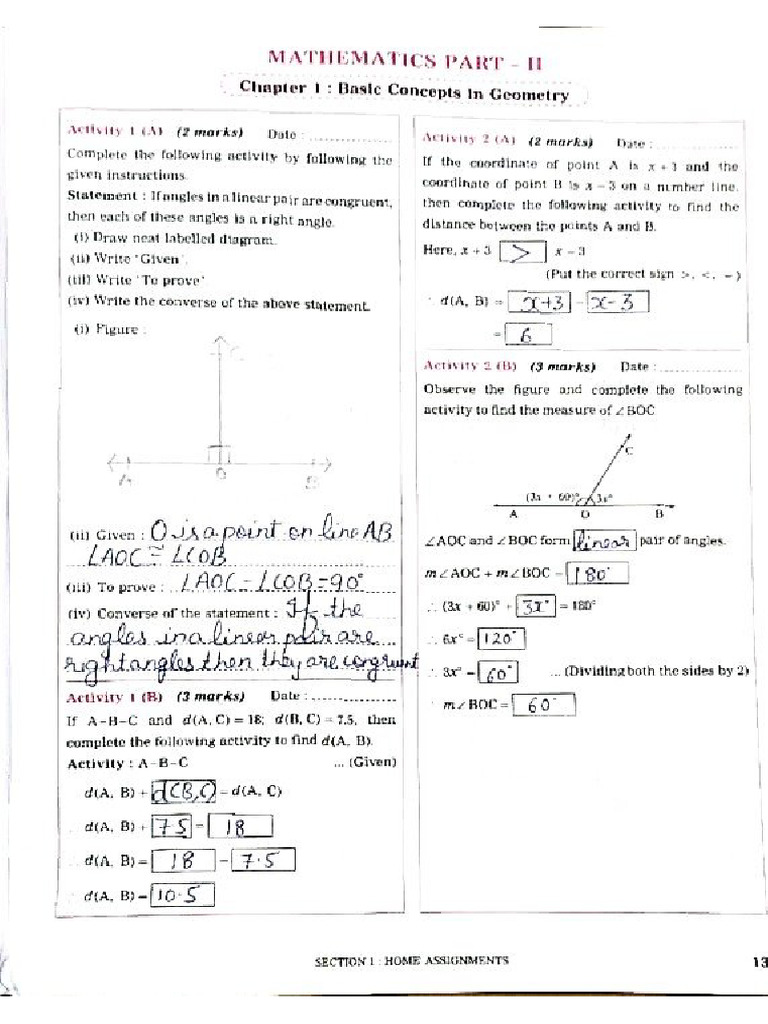 MATHEMATICS PART - II
Chapter 1 : Basic Concepts in Geometry
Activity 1 (A) (2 marks) Date : ..............
Complete the following activity by following the
given instructions.
Statement : If angles in a linear pair are congruent,
then each of these angles is a right angle.
(i) Draw neat labelled diagram.
(ii) Write 'Given'.
(iii) Write 'To prove'
(iv) Write the converse of the above statement.
(i) Figure :
C
A O B
(ii) Given : O is a point on line AB
∠AOC ≅ ∠COB
(iii) To prove : ∠AOC = ∠COB = 90°
(iv) Converse of the statement : If the
angles in a linear pair are
right angles then they are congruent
Activity 1 (B) (3 marks) Date : ..............
If A-B-C and d(A, C) = 18; d(B, C) = 7.5, then
complete the following activity to find d(A, B).
Activity : A-B-C ... (Given)
d(A, B) + d(B,C) = d(A, C)
∴ d(A, B) + 7.5 = 18
∴ d(A, B) = 18 - 7.5
∴ d(A, B) = 10.5
Activity 2 (A) (2 marks) Date : ..............
If the coordinate of point A is x + 3 and the
coordinate of point B is x - 3 on a number line,
then complete the following activity to find the
distance between the points A and B.
Here, x + 3 > x - 3
(Put the correct sign >, <, =)
∴ d(A, B) = x+3 - x-3
= 6
Activity 2 (B) (3 marks) Date : ..............
Observe the figure and complete the following
activity to find the measure of ∠BOC
C
(3x + 60)° 3x°
A O B
∠AOC and ∠BOC form linear pair of angles.
m∠AOC + m∠BOC = 180°
∴ (3x + 60)° + 3x° = 180°
∴ 6x° = 120°
∴ 3x° = 60° ... (Dividing both the sides by 2)
∴ m∠BOC = 60°
SECTION 1 : HOME ASSIGNMENTS
13